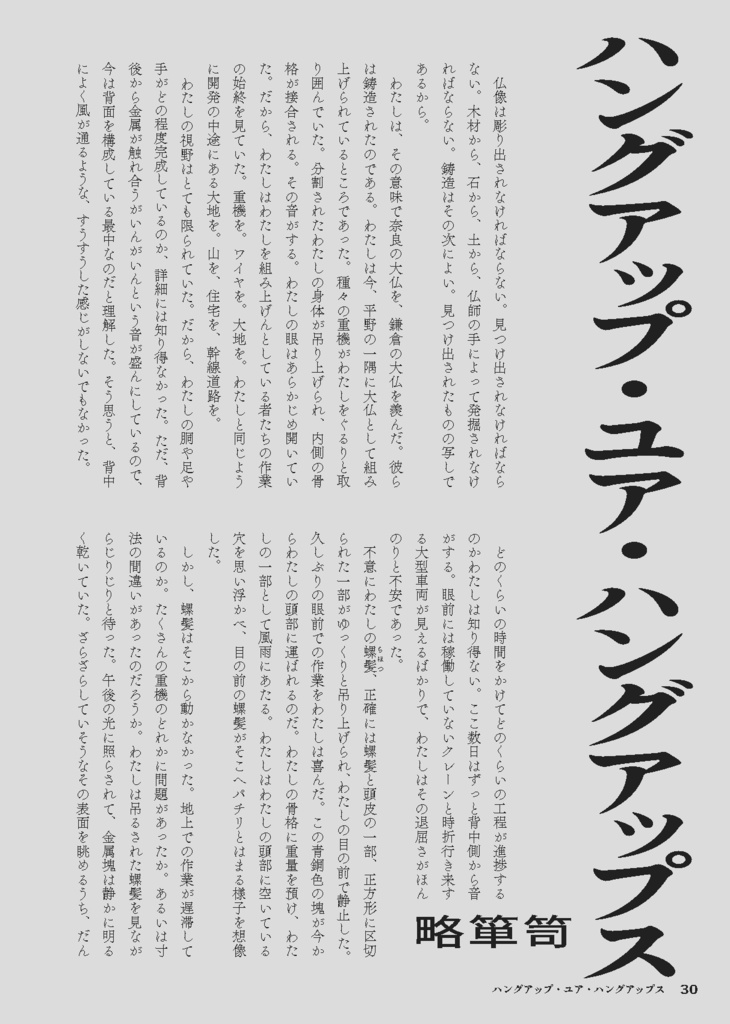 ハングアップ・ユア・ハングアップス
仏像は彫り出されなければならない。見つけ出されなければなら
ない。木材から、石から、土から、仏師の手によって発掘されなけ
ればならない。鋳造はその次によい。見つけ出されたものの写しで
あるから。
わたしは、その意味で奈良の大仏を、鎌倉の大仏を羨んだ。彼ら
は鋳造されたのである。わたしは今、平野の一隅に大仏として組み
上げられているところであった。種々の重機がわたしをぐるりと取
り囲んでいた。分割されたわたしの身体が吊り上げられ、内側の骨
格が接合される。その音がする。わたしの眼はあらかじめ開いてい
た。だから、わたしはわたしを組み上げんとしている者たちの作業
の始終を見ていた。重機を。ワイヤを。大地を。わたしと同じよう
に開発の中途にある大地を。山を、住宅を、幹線道路を。
わたしの視野はとても限られていた。だから、わたしの胴や足や
手がどの程度完成しているのか、詳細には知り得なかった。ただ、背
後から金属が触れ合うがいんがいんという音が盛んにしているので、
今は背面を構成している最中なのだと理解した。そう思うと、背中
によく風が通るような、すうすうした感じがしないでもなかった。
どのくらいの時間をかけてどのくらいの工程が進捗する
のかわたしは知り得ない。ここ数日はずっと背中側から音
がする。眼前には稼働していないクレーンと時折行き来す
る大型車両が見えるばかりで、わたしはその退屈さがほん
のりと不安であった。
不意にわたしの螺髪、正確には螺髪と頭皮の一部、正方形に区切
らほつ
られた一部がゆっくりと吊り上げられ、わたしの目の前で静止した。
久しぶりの眼前での作業をわたしは喜んだ。この青銅色の塊が今か
らわたしの頭部に運ばれるのだ。わたしの骨格に重量を預け、わた
しの一部として風雨にあたる。わたしはわたしの頭部に空いている
穴を思い浮かべ、目の前の螺髪がそこへパチリとはまる様子を想像
した。
しかし、螺髪はそこから動かなかった。地上での作業が遅滞して
いるのか。たくさんの重機のどれかに問題があったか。あるいは寸
法の間違いがあったのだろうか。わたしは吊るされた螺髪を見なが
らじりじりと待った。午後の光に照らされて、金属塊は静かに明る
く乾いていた。ざらざらしていそうなその表面を眺めるうち、だん
略箪笥
ハングアップ・ユア・ハングアップス 30